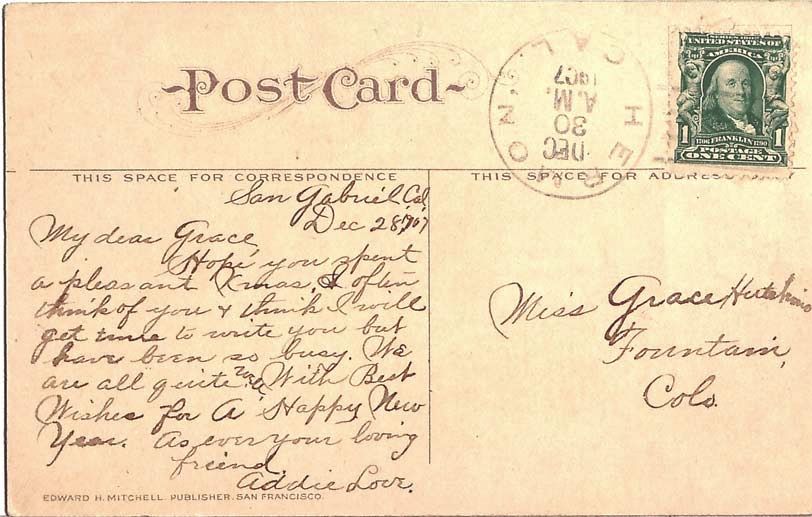 Post Card
HERMON, CAL.
DEC
30
A.M.
1907
SERIES 1902
UNITED STATES OF
AMERICA
1 1706 FRANKLIN 1790 1
POSTAGE
ONE CENT
THIS SPACE FOR CORRESPONDENCE
THIS SPACE FOR ADDRESS
San Gabriel Cal
Dec 28, 1907
My dear Grace,
Hope you spent
a pleasant Xmas. I often
think of you & think I will
get time to write you but
have been so busy. We
are all quite With Best
Wishes for A Happy New
Year. As ever your loving
friend
Addie Love.
Miss Grace Hutchins
Fountain,
Colo.
EDWARD H. MITCHELL. PUBLISHER. SAN FRANCISCO.